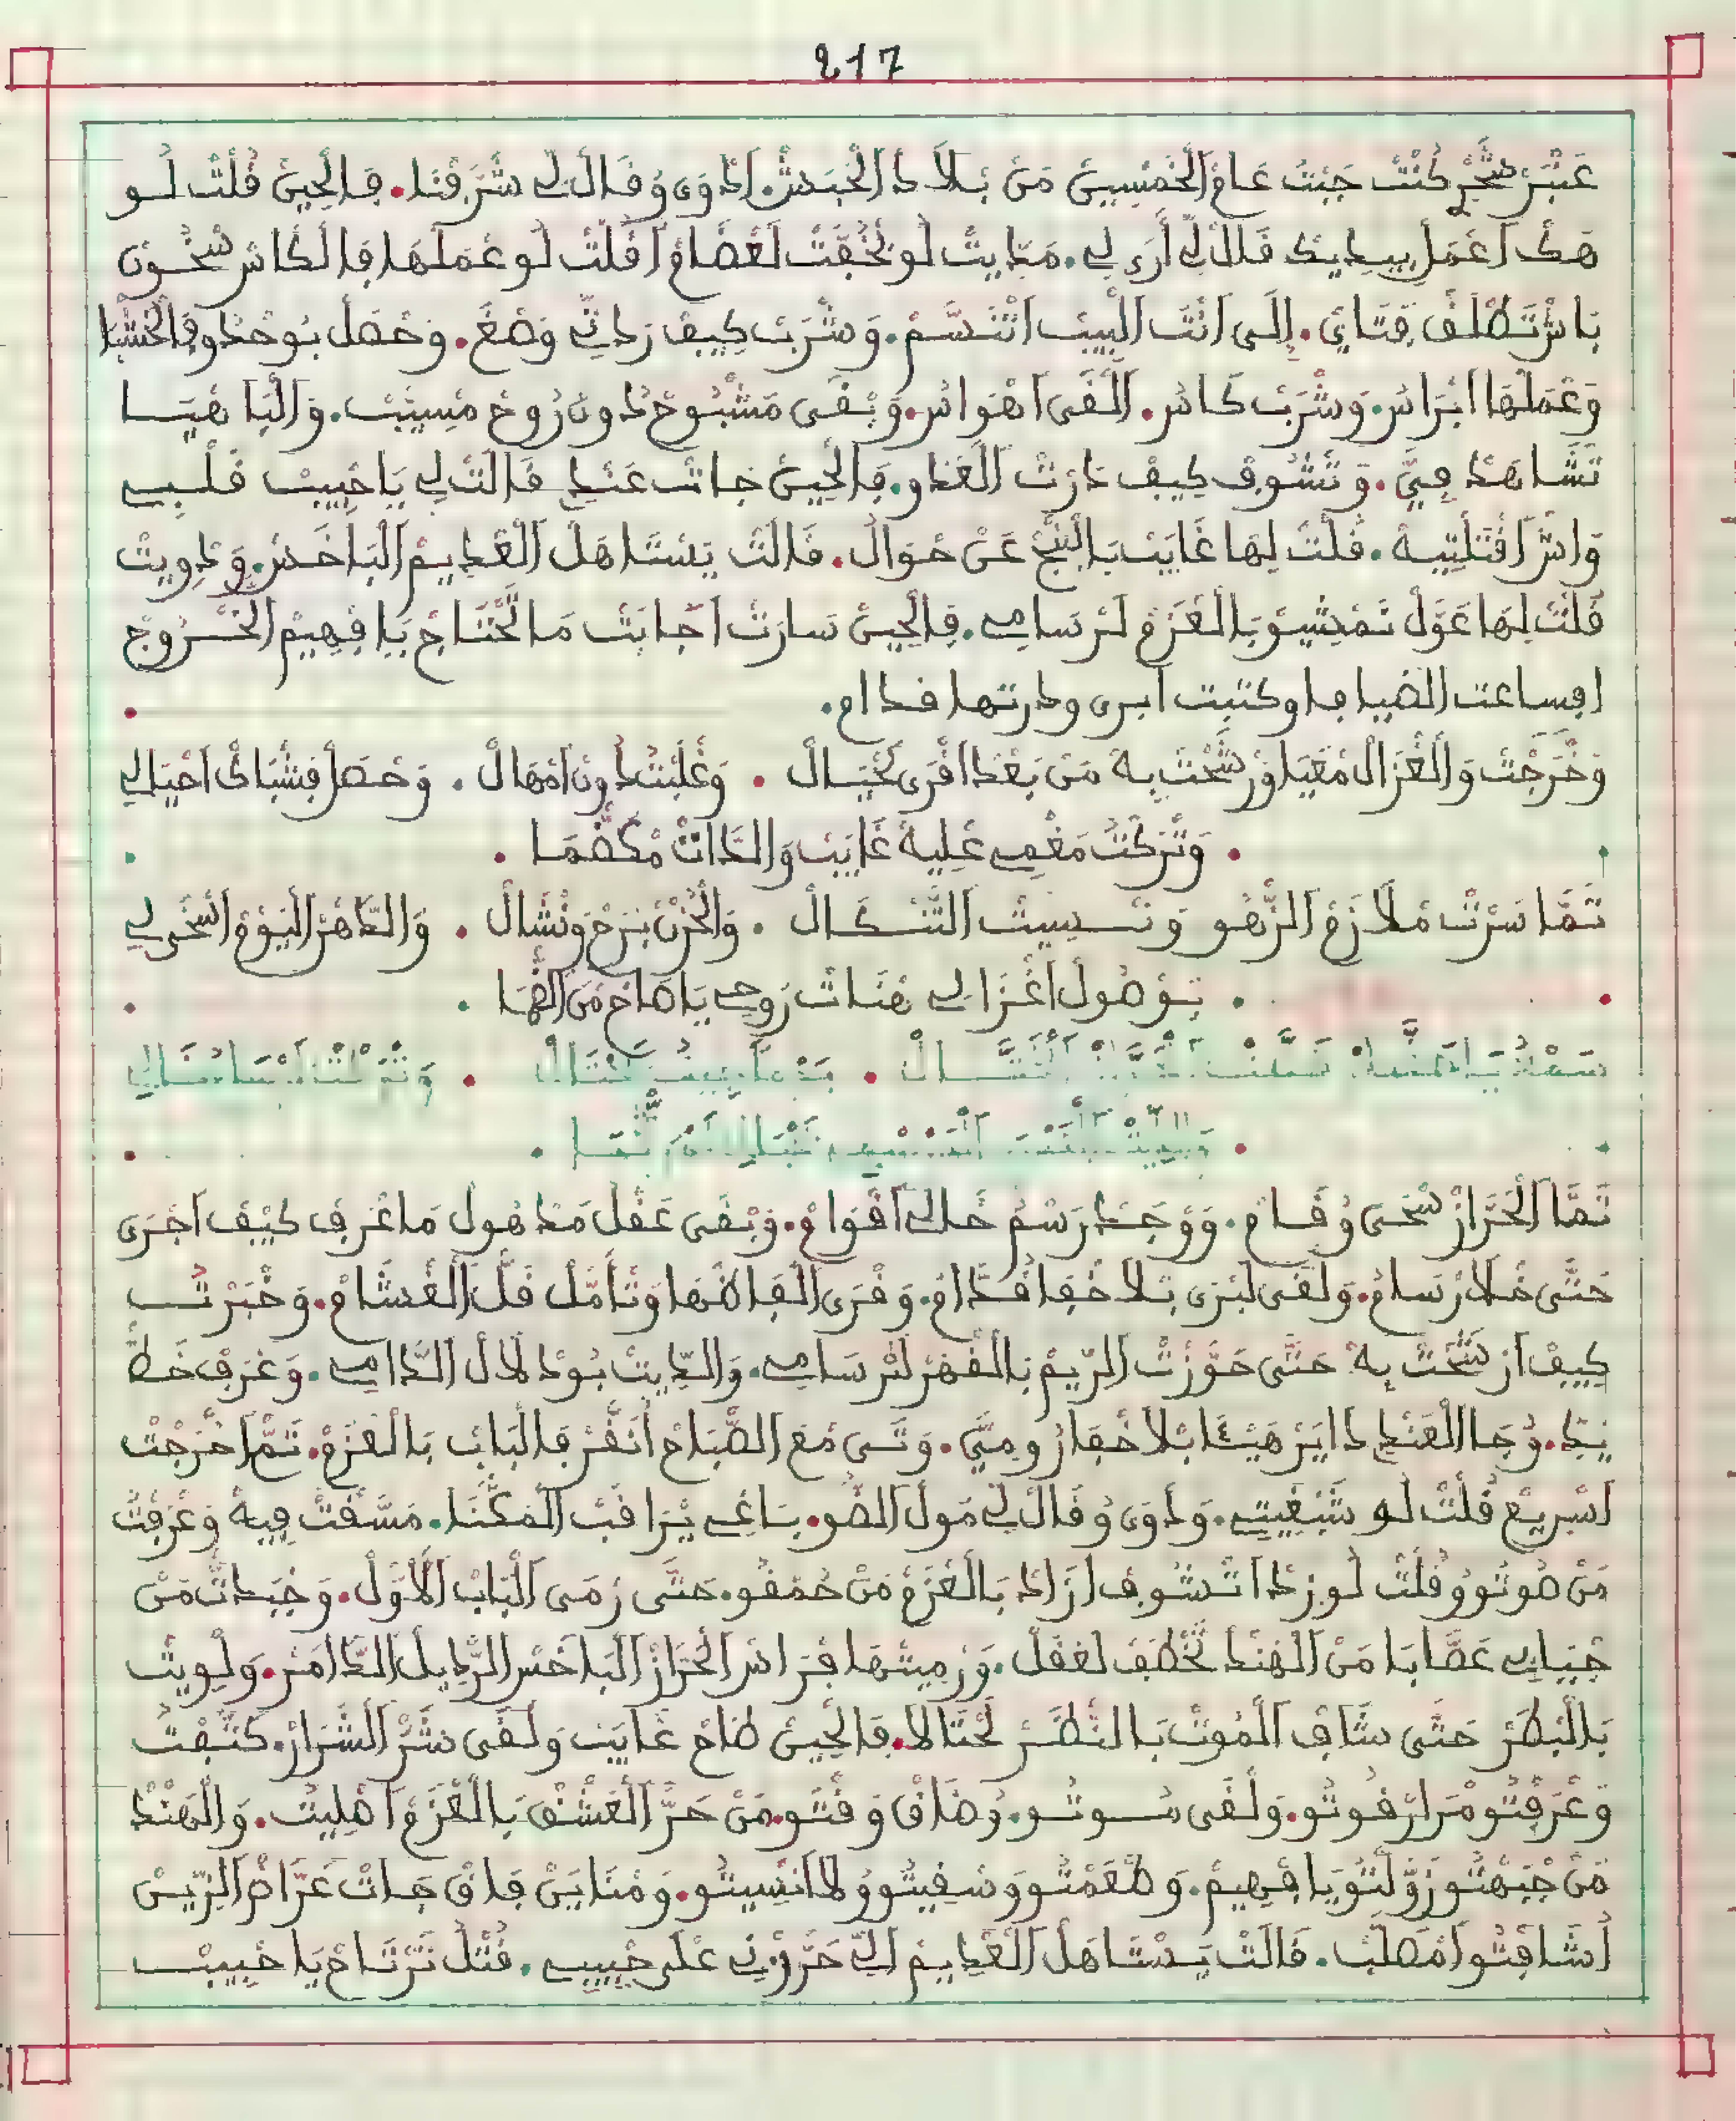 217
عَنْبَرْ شْجَرْ كُنْتْ جَبْتُ عَامْ الْخَمْسِينْ مَنْ بْلاَدْ الْحَبَشْ. اَدْوَى وُقَالْ لِي شَرَّفْنَا. فَالْحِينْ قُلْتْ لُو
هَكْ اَعْمَلْ بِيدِيكْ قَالْ لِي أَرَى لِي. مَدِّيتْ لُو تْخُفَّتْ لَعْضَامْ اَقُلْتْ لُو عْمَلْهَا فَالْكَاسْ سْخُونْ
بَاشْ تَطْلَقْ فَتَّايْ. إِلَى اَنْتَ الْبِيبْ اَتْنَسَّمْ. وَشْرَبْ كِيفْ رَدْنِي وَصْغَ. وَحْصَلْ بُوحْدُو فَالْخْشْبَا
وَعْمَلْهَا اَبْرَاسْ. وَشْرَبْ كَاسْ. اَلْقَى اَهْوَاسْ. وَبْقَى مَشْبُوحْ دُونْ رُوحْ مْسِيَّبْ. وَالْبَاهْيَا
تْشَاهَدْ فِيَّ. وَتْشُوفْ كِيفْ دَرْتْ الْعَدُو. فَالْحِينْ جَاتْ عَنْدِي قَالَتْ لِي يَا حْبِيبْ قَلْبِي
وَاشْ اَقْتَلْتِيهْ. قُلْتْ لِهَا غَايَبْ بَالْبَنْجْ عَنْ حْوَالْ. قَالَتْ يَسْتَاهَلْ الْقْدِيمْ اَلْبَاخَسْ. وَدْوِيتْ
قُلْتْ لِهَا عَوَّلْ نَمْشِيوْ بَالْعَزْمْ لَرْسَامِي. فَالْحِينْ سَارَتْ اَجَابَتْ مَا تَحْتَاجْ يَا فْهِيمْ الْخْرُوجْ
افساعت الضيافا وكتبت ابرى ودرتها قدام.
وَخْرَجْتْ وَالْغْزَالْ مْعَيَا وُرْشَحْتْ بِهْ مَنْ بَعْدْ اَقْرَى تَحْيَالْ . وَغْلَبْتْ دُونْ اَمْهَالْ . وَحْصَلْ فَشْبَاكْ اَحْيَالِي
. وَتْرَكْتْ مَغْمِي عْلِيهْ غَايَبْ وَالدَّاتْ مْكَضْمَا .
تَمَّا سَرْتْ مْلاَزَمْ الزَّهُو وَنْسِيتْ التَّنْكَالْ . وَالْحُزْنْ بْرَحْ وَنْشَالْ . وَالدَّاهْرْ الْيَوْمْ اَسْخَى لِي
. بَوْصُولْ اَغْزَالِي هْنَاتْ رُوحِي يَا صَاحْ مَنْ الضّْمَا .
تَمَّا الْحَرَّازْ سْحَى وُقَامْ. وَوْجَدْ رَسْمُ خَالِي اَقْوَامْ. وَبْقَى عَقْلُ مَدْهُولْ مَا عْرَفْ كِيفْ اَجْرَى
حَتَّى خْلاَ رْسَامُ. وَلْقَى لَبْرَى بْلاَ خْفَا قُدَّامُ. وَقْرَى اَلْفَاضْهَا وَتْأَمَّلْ قَلْ الْغْشَامْ. وَخْبَرْتُ
كِيفْ اَرْشَحْتْ بِهْ حَتَّى حَوَّزْتْ الرِّيمْ بَالْقْهَرْ لَرْسَامِي. وَالدِّيتْ بُودْلاَلْ الدَّامِي. وَعْرَفْ خَطّْ
يَدِّي. وُجَا الْعَنْدِي دَايَرْ هَيْئَا بْلاَ خْفَا رُومِيَّ. وَتَى مْعَ الصّْبَاحْ اَنْقَرْ فَالْبَابْ بَالْعَزْمْ. تَمَّ اَخْرَجْتْ
اَسْرِيعْ قُلْتْ لُو شَتْبْغِيتِي. وَدْوَى وُقَالْ لِي مُولْ الضُّو. بَاغِي يْرَاقَبْ الْمَكْنَا. مَسَّقْتْ فِيهْ وَعْرَفْتْ
مَنْ صُوتُو وُقُلْتْ لُو زِدْ اَتْشُوفْ اَزَادْ بَالْعَزْمْ مَنْ حُمْقُو. حَتَّى رْمَى الْبَابْ الْاَوَّلْ. وَجْبَدْتْ مَنْ
جْبَابِي عَصَّابَا مَنْ الْهَنْدْ تَخْطَفْ لَعْقَلْ. وَرْمِيتْهَا فْرَاسْ الْحَرَّازْ الْبَاخَسْ الرّْدِيلْ الدَّامَرْ. وَلْوِيتْ
بَالْبْطَرْ حَتَّى شَافْ الْمُوتْ بَالنّْظَرْ لَحْتَالاَ. فَالْحِينْ طَاحْ غَايَبْ وَلْقَى شَرّْ الشْرَارْ. كَتَّفْتُ
وَعْرَفْتُو مْرَارْ قُوتُو. وَلْقَى سُوتُو. وُضَاقْ وَقْتُو. مَنْ حَرّْ الْعَشْقْ بَالْعْزَمْ اَهْلِيتْ. وَالْهَنْدْ
مَنْ جْبَهْتُو زَوَّلْتُو يَا فْهِيمْ. وَطْعَمْتُو وَسْقِيتُو وُلاَ اَنْسِيتُو. وَمْنَايَنْ فَاقْ جَاتْ عَرَّاضْ الرِّيسْ
اَشَافْتُو اَمْصَلَّبْ. قَالَتْ يَسْتَاهَلْ الْقْدِيمْ الِّي حَرَّزْنِي عْلَى حْبِيبِي. قُتْلْ تَرْتَاحْ يَا حْبِيبْ